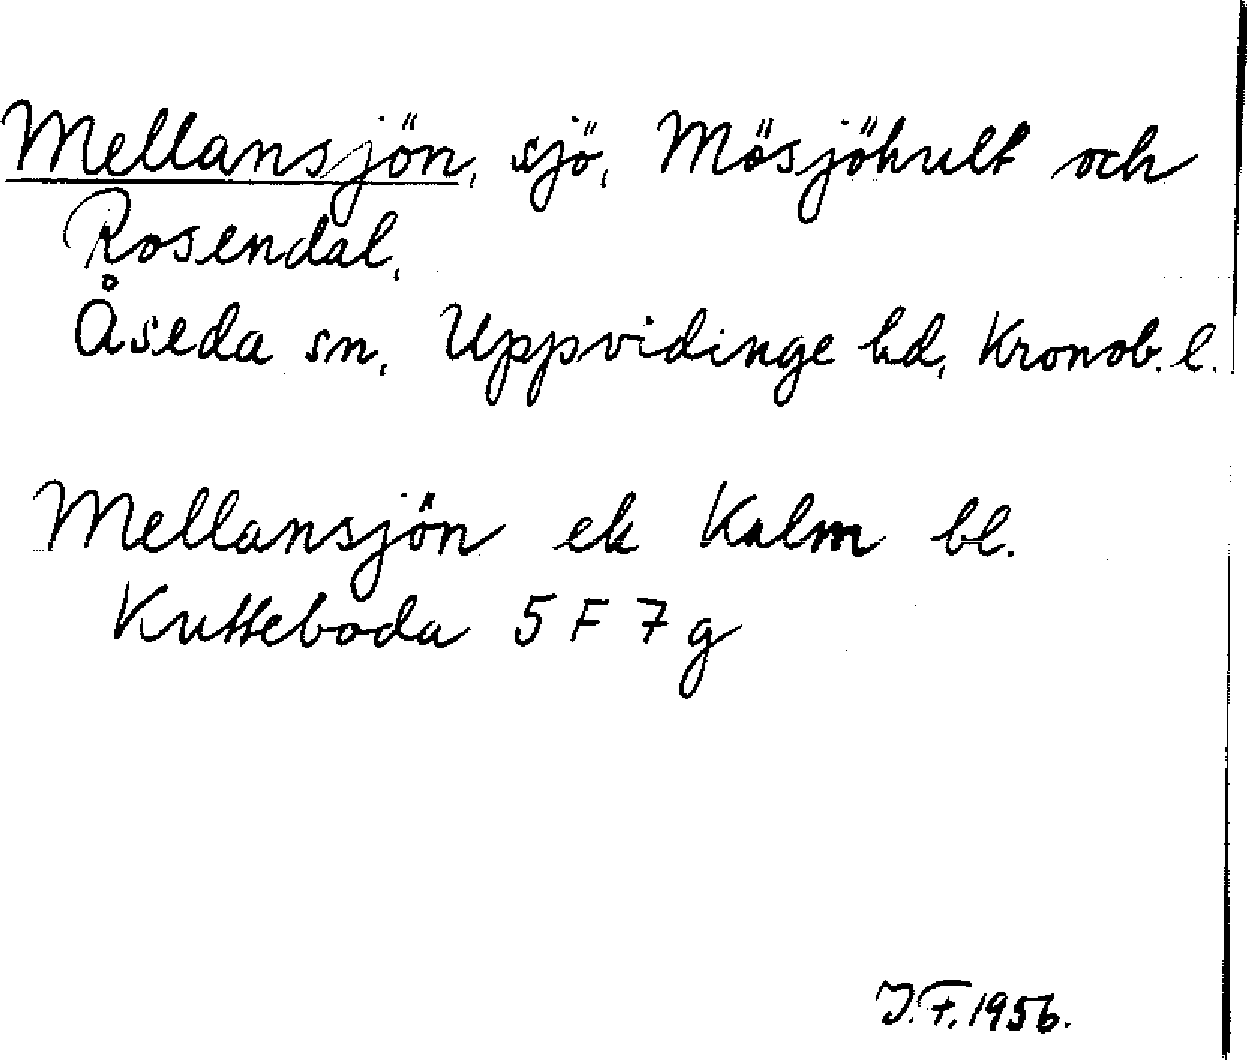 Mellansjön, sjö, Mösjöhult och
Rosendal,
Åseda sn, Uppvidinge hd, Kronob. l.
Mellansjön ek Kalm bl.
Kutteboda 5 F 7 g
J.F. 1956.